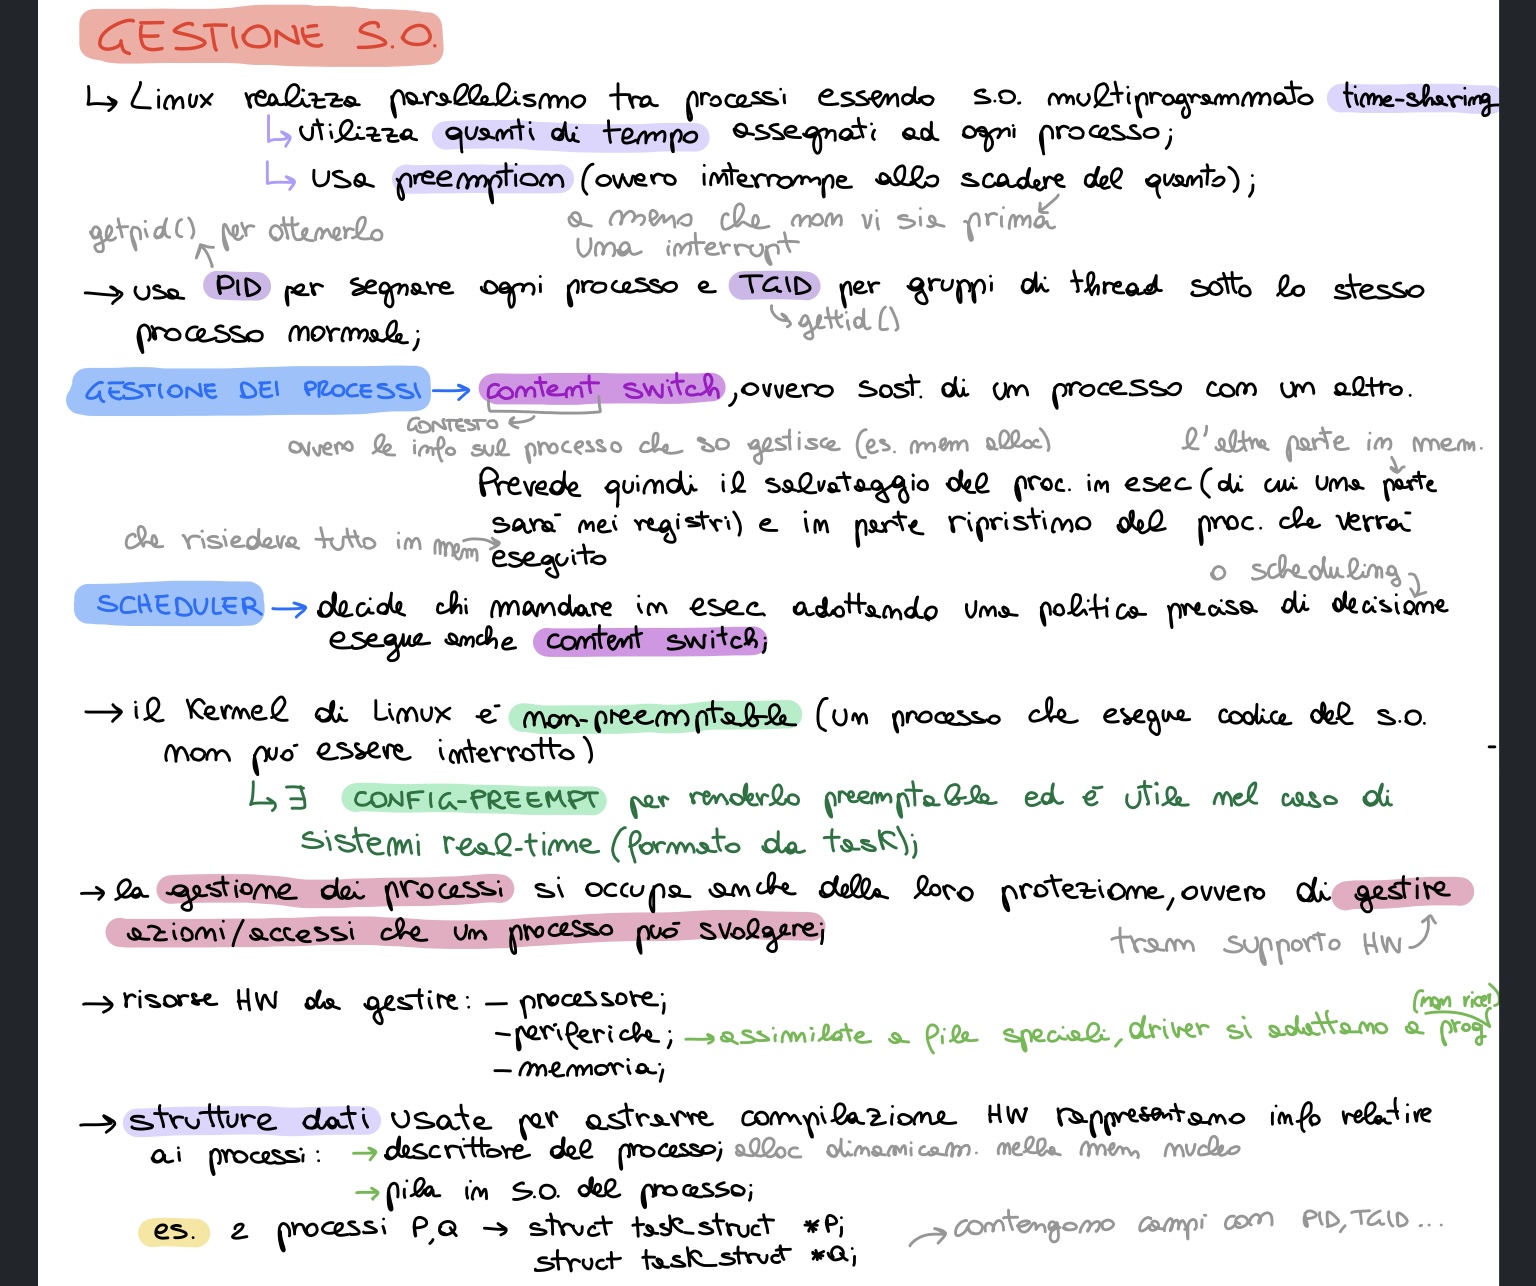 GESTIONE S.O.
↳ Linux realizza parallelismo tra processi essendo s.o. multiprogrammato time-sharing
↳ utilizza quanti di tempo assegnati ad ogni processo;
↳ usa preemption (ovvero interrompe allo scadere del quanto);
a meno che non vi sia prima
una interrupt
getpid() per ottenerlo
→ usa PID per segnare ogni processo e TGID per gruppi di thread sotto lo stesso
↳ gettid()
processo normale;
GESTIONE DEI PROCESSI → content switch, ovvero sost. di un processo con un altro.
CONTESTO ←
ovvero le info sul processo che so gestisce (es. mem alloc)
l'altra parte in mem.
Prevede quindi il salvataggio del proc. in esec (di cui una parte
sarà nei registri) e in parte ripristino del proc. che verrà
che risiedeva tutto in mem → eseguito
o scheduling
SCHEDULER → decide chi mandare in esec adottando una politica precisa di decisione
esegue anche content switch;
→ il Kernel di Linux è non-preemptable (un processo che esegue codice del s.o.
non può essere interrotto)
↳ ∃ CONFIG-PREEMPT per renderlo preemptable ed è utile nel caso di
sistemi real-time (formato da task);
→ la gestione dei processi si occupa anche della loro protezione, ovvero di gestire
azioni/accessi che un processo può svolgere;
tram supporto HW
→ risorse HW da gestire: - processore;
(non vicev)
- periferiche; → assimilate a file speciali, driver si adattano a prog
- memoria;
→ strutture dati usate per astrarre compilazione HW rappresentano info relative
ai processi: → descrittore del processo; alloc dinamicam. nella mem nucleo
→ pila in s.o. del processo;
es. 2 processi P,Q → struct task struct *P; → contengono campi con PID, TGID...
struct task struct *Q;